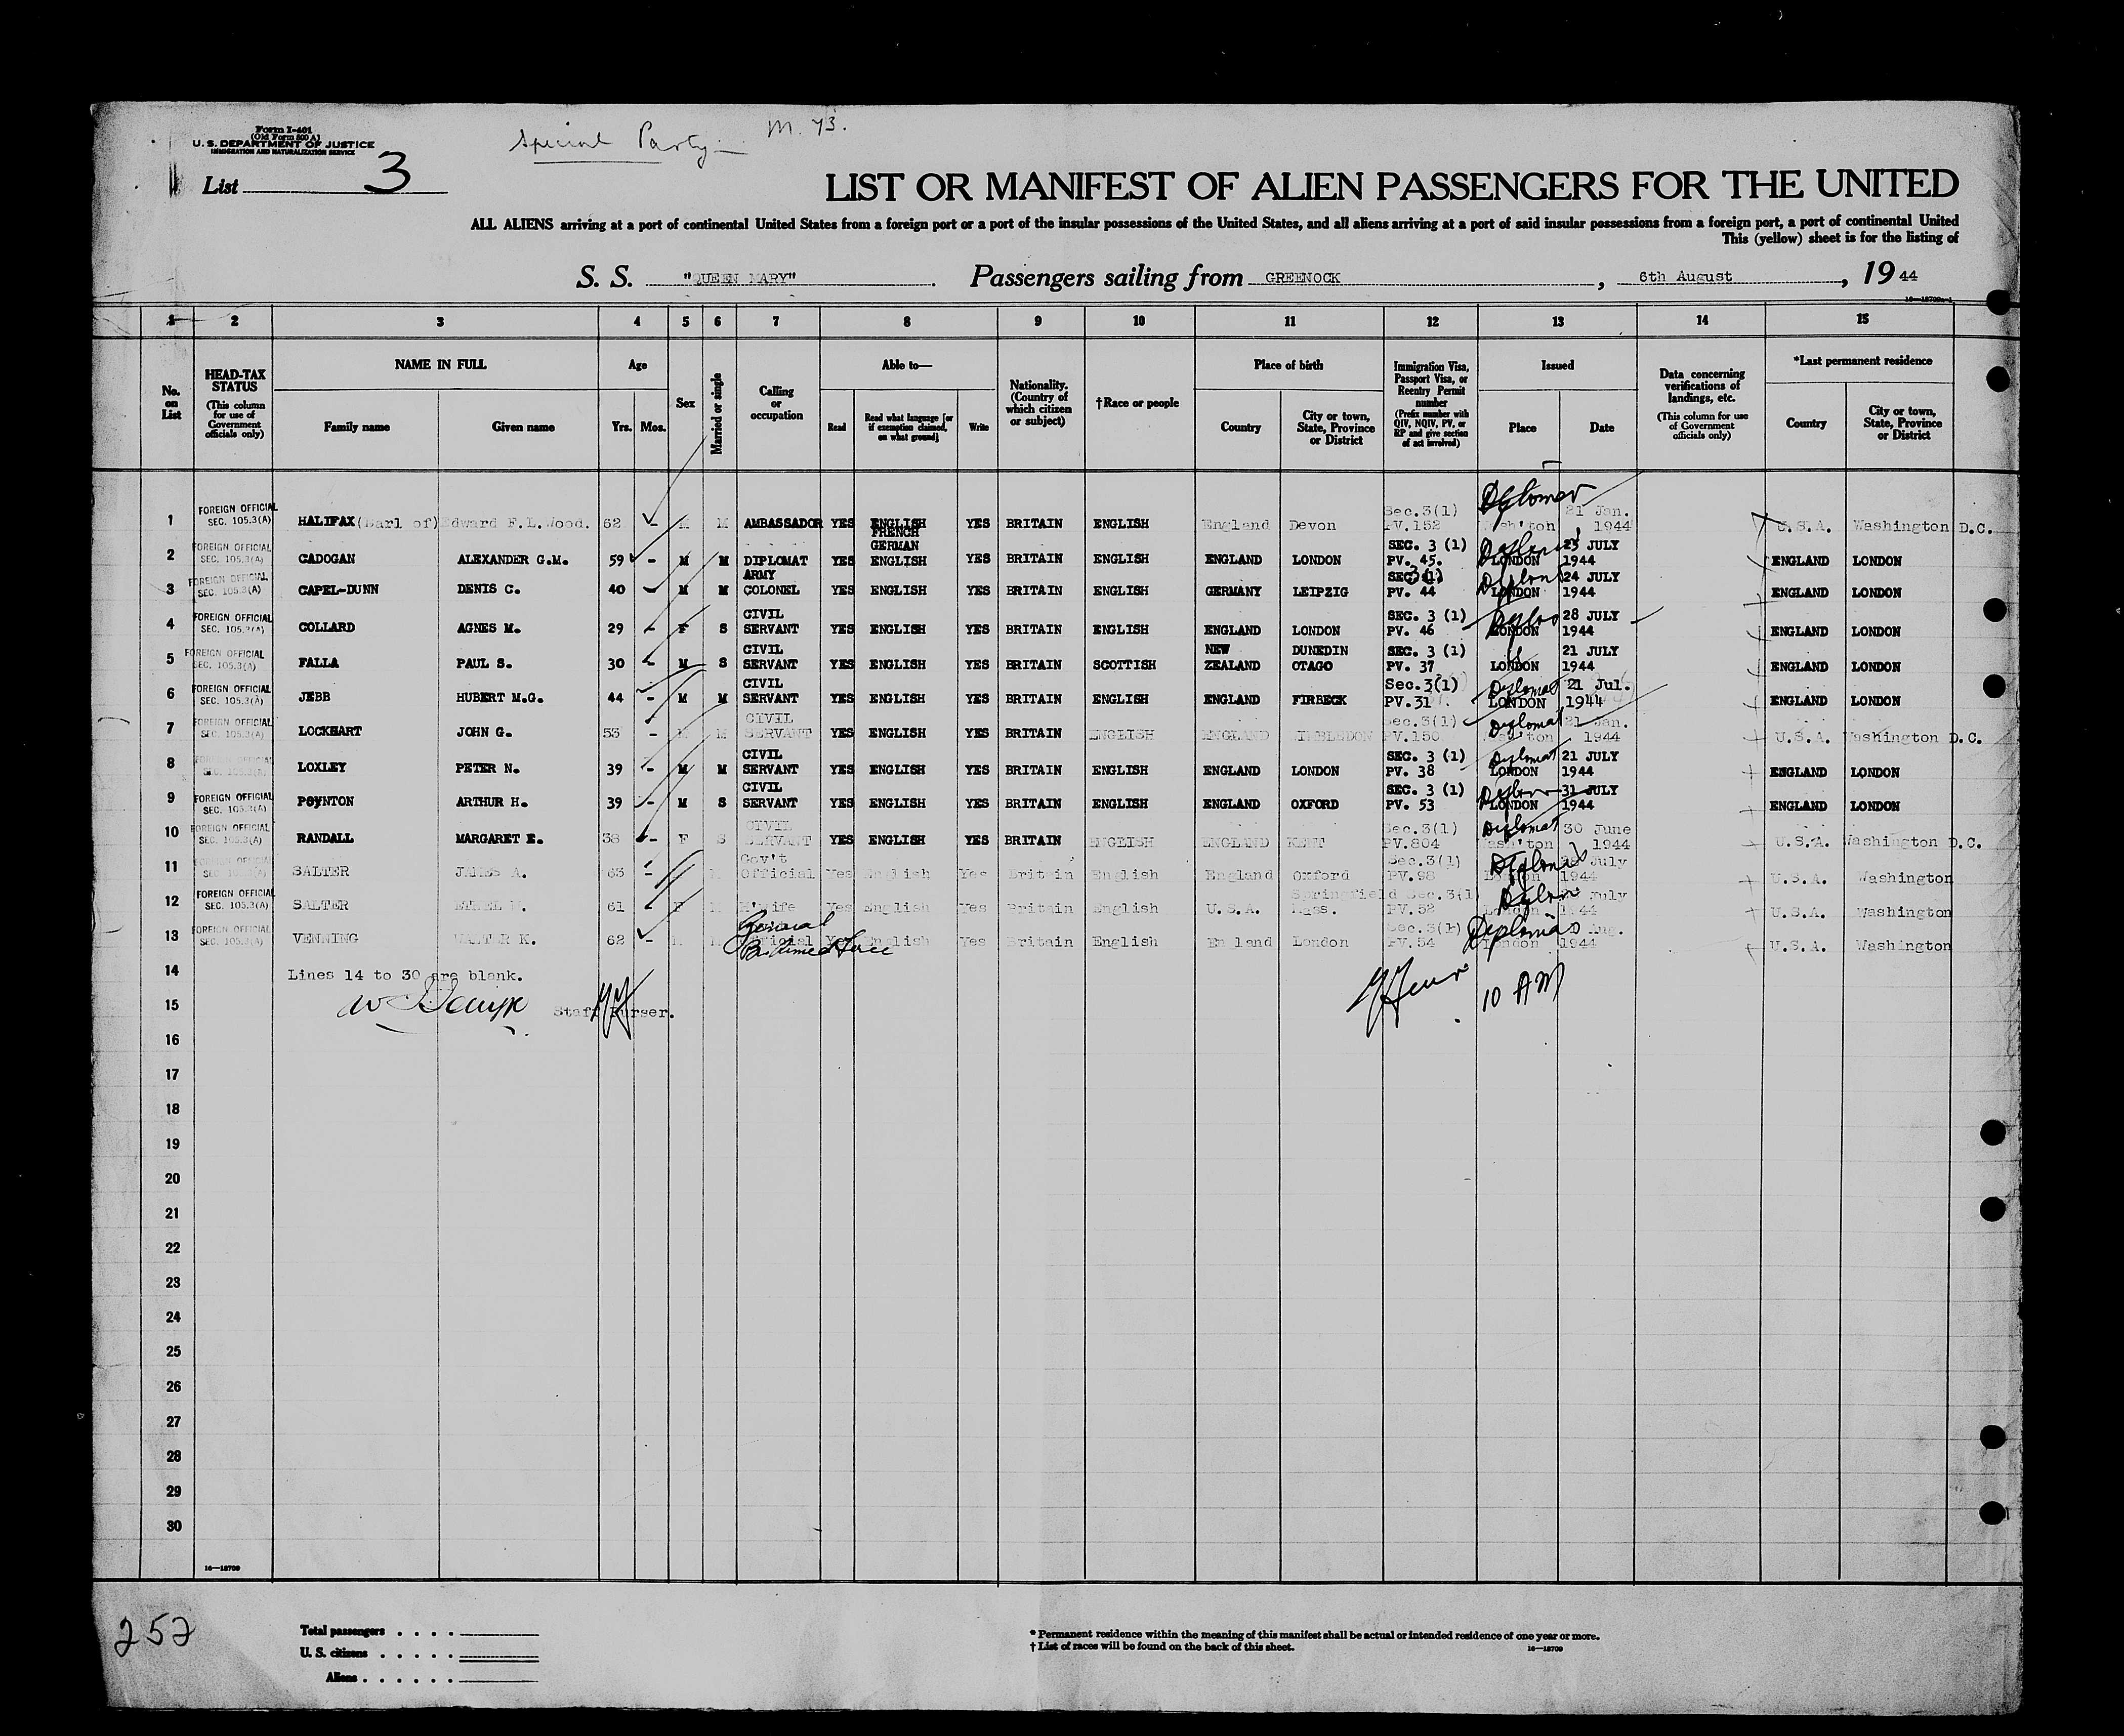 Form I-401
(Old Form 500 A)
U. S. DEPARTMENT OF JUSTICE
IMMIGRATION AND NATURALIZATION SERVICE
Special Party M. 73.
List 3
LIST OR MANIFEST OF ALIEN PASSENGERS FOR THE UNITED
ALL ALIENS arriving at a port of continental United States from a foreign port or a port of the insular possessions of the United States, and all aliens arriving at a port of said insular possessions from a foreign port, a port of continental United
This (yellow) sheet is for the listing of
S. S. "QUEEN MARY" Passengers sailing from GREENOCK, 6th August, 1944
16—18709a-1
1 2 3 4 5 6 7 8 9 10 11 12 13 14 15
No. on List
HEAD-TAX STATUS (This column for use of Government officials only)
NAME IN FULL
Family name Given name
Age
Yrs. Mos.
Sex
Married or single
Calling or occupation
Able to—
Read Read what language [or if exemption claimed, on what ground] Write
Nationality. (Country of which citizen or subject)
†Race or people
Place of birth
Country City or town, State, Province or District
Immigration Visa, Passport Visa, or Reentry Permit number (Prefix number with QIV, NQIV, PV, or RP and give section of act involved)
Issued
Place Date
Data concerning verifications of landings, etc. (This column for use of Government officials only)
*Last permanent residence
Country City or town, State, Province or District
1 FOREIGN OFFICIAL SEC. 105.3(A) HALIFAX (Earl of) Edward F.L.Wood. 62 - M M AMBASSADOR YES ENGLISH YES BRITAIN ENGLISH England Devon Sec.3(1) PV.152 Diplomat Wash'ton 21 Jan. 1944 U.S.A. Washington D.C.
2 FOREIGN OFFICIAL SEC. 105.3(A) CADOGAN ALEXANDER G.M. 59 - M M DIPLOMAT YES FRENCH GERMAN ENGLISH YES BRITAIN ENGLISH ENGLAND LONDON SEC. 3 (1) PV. 45. LONDON JULY 1944 ENGLAND LONDON
3 FOREIGN OFFICIAL SEC. 105.3(A) CAPEL-DUNN DENIS C. 40 M M ARMY COLONEL YES ENGLISH YES BRITAIN ENGLISH GERMANY LEIPZIG SEC. 3(1) PV. 44 LONDON 24 JULY 1944 ENGLAND LONDON
4 FOREIGN OFFICIAL SEC. 105.3(A) COLLARD AGNES M. 29 - F S CIVIL SERVANT YES ENGLISH YES BRITAIN ENGLISH ENGLAND LONDON SEC. 3 (1) PV. 46 LONDON 28 JULY 1944 ENGLAND LONDON
5 FOREIGN OFFICIAL SEC. 105.3(A) FALLA PAUL S. 30 - M S CIVIL SERVANT YES ENGLISH YES BRITAIN SCOTTISH NEW ZEALAND DUNEDIN OTAGO SEC. 3 (1) PV. 37 LONDON 21 JULY 1944 ENGLAND LONDON
6 FOREIGN OFFICIAL SEC. 105.3(A) JEBB HUBERT M.G. 44 - M M CIVIL SERVANT YES ENGLISH YES BRITAIN ENGLISH ENGLAND FIRBECK Sec.3(1) PV.31 Diplomat LONDON 21 Jul. 1944 ENGLAND LONDON
7 FOREIGN OFFICIAL SEC. 105.3(A) LOCKHART JOHN G. 53 - M M CIVIL SERVANT YES ENGLISH YES BRITAIN ENGLISH ENGLAND WIMBLEDON Sec.3(1) PV.150 Diplomat Wash'ton 21 Jan. 1944 U.S.A. Washington D.C.
8 FOREIGN OFFICIAL SEC. 105.3(A) LOXLEY PETER N. 39 - M M CIVIL SERVANT YES ENGLISH YES BRITAIN ENGLISH ENGLAND LONDON SEC. 3 (1) PV. 38 Diplomat LONDON 21 JULY 1944 ENGLAND LONDON
9 FOREIGN OFFICIAL SEC. 105.3(A) POYNTON ARTHUR H. 39 - M S CIVIL SERVANT YES ENGLISH YES BRITAIN ENGLISH ENGLAND OXFORD SEC. 3 (1) PV. 53 LONDON 31 JULY 1944 ENGLAND LONDON
10 FOREIGN OFFICIAL SEC. 105.3(A) RANDALL MARGARET E. 38 - F S CIVIL SERVANT YES ENGLISH YES BRITAIN ENGLISH ENGLAND KENT Sec.3(1) PV.804 Diplomat Wash'ton 30 June 1944 U.S.A. Washington D.C.
11 FOREIGN OFFICIAL SEC. 105.3(A) SALTER JAMES A. 63 - M Gov't Official Yes English Yes Britain English England Oxford Sec.3(1) PV.98 Diplomat London July 1944 U.S.A. Washington
12 FOREIGN OFFICIAL SEC. 105.3(A) SALTER ETHEL 61 - F M H'wife Yes English Yes Britain English U.S.A. Springfield Mass. Sec.3(1) PV.52 London July 1944 U.S.A. Washington
13 FOREIGN OFFICIAL SEC. 105.3(A) VENNING WALTER K. 62 - M M General Official Yes English Yes Britain English England London Sec.3(1) PV.54 Diplomat London Aug. 1944 U.S.A. Washington
14 Lines 14 to 30 are blank.
15 Staff Purser. 10 AM
16
17
18
19
20
21
22
23
24
25
26
27
28
29
30
16—18709
252
Total passengers
U. S. citizens
Aliens
* Permanent residence within the meaning of this manifest shall be actual or intended residence of one year or more.
† List of races will be found on the back of this sheet. 16—18709